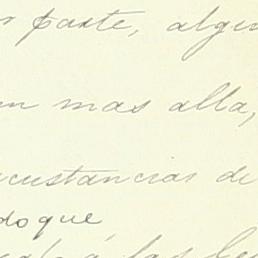 r parte, algun
un mas alla,
rcustancias de
do que
á las